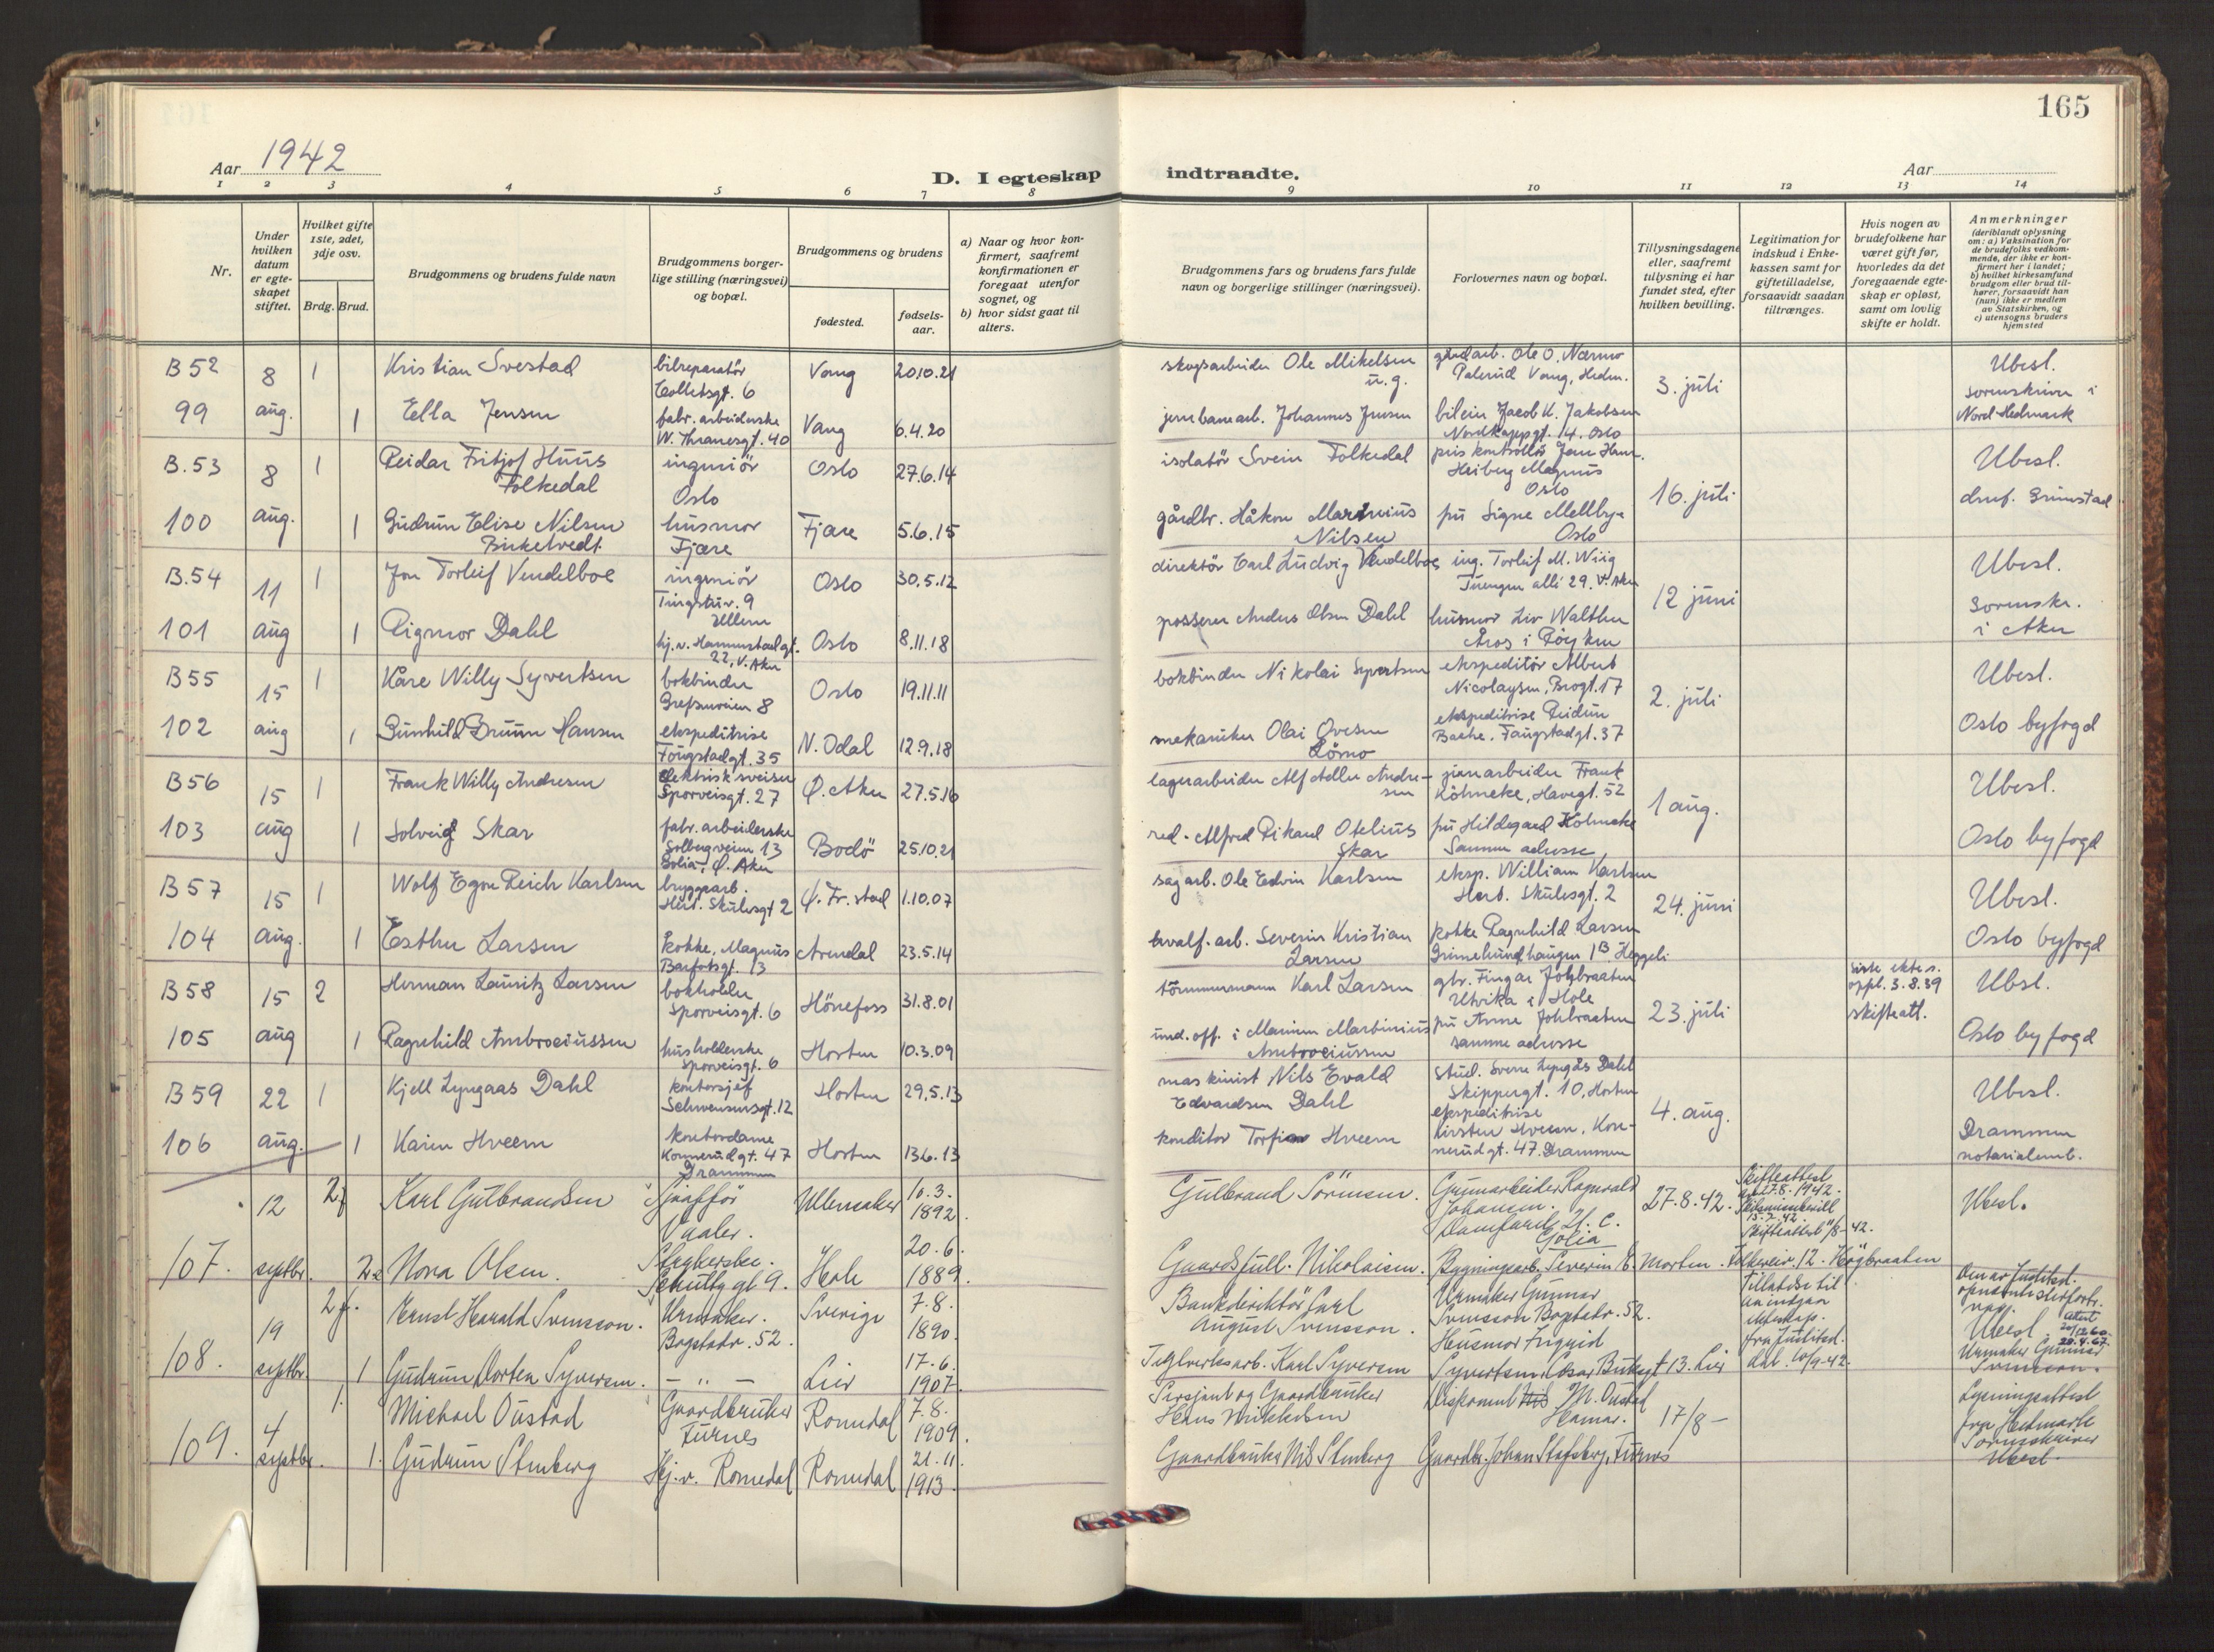 165
Aar 1942
D. I egteskap indtraadte.
Aar
1 2 3 4 5 6 7 8 9 10 11 12 13 14
Nr.
Under hvilken datum er egteskapet stiftet.
Hvilket gifte 1ste, 2det, 3dje osv.
Brdg. Brud.
Brudgommens og brudens fulde navn
Brudgommens borgerlige stilling (næringsvei) og bopæl.
Brudgommens og brudens
fødested.
fødsels-aar.
a) Naar og hvor konfirmert, saafremt konfirmationen er foregaat utenfor sognet, og
b) hvor sidst gaat til alters.
Brudgommens fars og brudens fars fulde navn og borgerlige stillinger (næringsvei).
Forlovernes navn og bopæl.
Tillysningsdagene eller, saafremt tillysning ei har fundet sted, efter hvilken bevilling.
Legitimation for indskud i Enkekassen samt for giftetilladelse, forsaavidt saadan tiltrænges.
Hvis nogen av brudefolkene har været gift før, hvorledes da det foregaaende egteskap er opløst, samt om lovlig skifte er holdt.
Anmerkninger (deriblandt oplysning om: a) Vaksination for de brudefolks vedkommende, der ikke er konfirmert her i landet; b) hvilket kirkesamfund brudgom eller brud tilhører, forsaavidt han (hun) ikke er medlem av Statskirken, og c) utensogns bruders hjemsted
B 52 8 1 Kristian Svestad bilreparatör Colletsgt. 6 Vang 20.10.21 skogsarbeider Ole Mikelsen u.g. gårdarb. Ole O. Nærmo Palerud Vang, Hedm. 3. juli Ubesl.
99 aug. 1 Ella Jensen fabr. arbeiderske W. Thranesgt. 40 Vang 6.4.20 jernbanearb. Johannes Jensen bileier Jacob K. Jakobsen Nordkappgt. 14. Oslo sorenskriver i Nord-Hedmark
B.53 8 1 Reidar Fritjof Huus Folkedal ingeniör Oslo Oslo 27.6.14 isolatör Svein Folkedal priskontrollör Jens Henr. Heiberg Magnus Oslo 16. juli Ubesl.
100 aug. 1 Gudrun Elise Nilsen Birketvedt husmor Fjære Fjære 5.6.15 gårdbr. Håkon Marinius Nilsen fru Signe Mellbye Oslo Grimstad
B.54 11 1 Jon Torleif Vendelboe ingeniör Tingstuv. 9 Ullern Oslo 30.5.12 direktör Carl Ludvig Vendelboe ing. Torleif M. Wiig Tuengen allé 29. V. Aker 12 juni Ubesl.
101 aug 1 Rigmor Dahl hj.v. Hammerstad gt. 22, V. Aker Oslo 8.11.18 Anders Olsen Dahl husmor Liv Walther Åros i Röyken sorenskr. i Aker
B55 15 1 Kåre Willy Syvertsen bokbinder Grefsenveien 8 Oslo 19.11.11 bokbinder Nikolai Syvertsen ekspeditör Albert Nicolaysen, Brogt. 17 2. juli Ubesl.
102 aug 1 Gunhild Bruun Hansen ekspeditrise Fougstadgt. 35 N. Odal 12.9.18 mekaniker Olai Ovesen Lömo ekspeditrise Reidun Bache. Faugstadgt. 37 Oslo byfogd
B56 15 1 Frank Willy Andresen Elektrisk sveiser Sporveisgt. 27 Ø. Aker 27.5.16 lagerarbeider Alf Adler Andresen jernarbeider Frank Köhneke, Havegt. 52 1 aug. Ubesl.
103 aug 1 Solveig Skar fabr. arbeiderske Solbergveien 13 Golia, Ø. Aker Bodö 25.10.21 red. Alfred Rikard Otelius Skar fru Hildegard Köhneke Samme adresse Oslo byfogd
B57 15 1 Wolf Egon Reich Karlsen bryggearb. Hert. Skulesgt 2 Ø. Fr.stad 1.10.07 sagarb. Ole Edvin Karlsen eksp. William Karlsen Hert. Skulesgt. 2 24. juni Ubesl.
104 aug. 1 Esther Larsen kokke, Magnus Barfotsgt. 13 Arendal 23.5.14 hvalf. arb. Severin Kristian Larsen kokke Ragnhild Larsen Grimelundhaugen 1B Heggeli Oslo byfogd
B58 15 2 Herman Lauritz Larsen bokholder Sporveisgt. 6 Hönefoss 31.8.01 tömmermann Karl Larsen gbr. Fingar Johbraaten Utvika i Hole 23. juli siste ektesk. oppl. 3.8.39 skifteatt. Ubesl.
105 aug 1 Ragnhild Ambrociussen husholderske Sporveisgt. 6 Horten 10.3.09 und. off. i Marinen Martinius Ambrociussen fru Anne Johbraaten samme adresse Oslo byfogd
B59 22 1 Kjell Lyngaas Dahl kontorsjef Schwensensgt. 12 Horten 29.5.13 maskinist Nils Evald Edvardsen Dahl stud. Sverre Lyngås Dahl Skippergt. 10, Horten 4. aug. Ubesl.
106 aug. 1 Karin Hveem kontordame Konnerudgt. 47 Drammen Horten 13.6.13 konditor Torfinn Hveem ekspeditrise Kirsten Hveem. Konnerudgt. 47. Drammen Drammen notarialemb.
12 2 Karl Gulbrandsen Sjaafför Vaaler. Ullensaker 10.3. 1892. Gulbrand Sörensen. Gummarbeider Ragnvald Johansen. 27.8.42. Skifteattest Skifteattest 11/8-42. Ubesl.
107. septbr. 2 Nora Olsen. Schultz gt 9. Hole 20.6. 1889. Gaardsfull. Nikolaisen. Bygningsarb. Severin E. Morten. 12. Högbraaten
19 2 Ernst Harald Svensson. Urmaker. Bogstadv. 52. Sverige 7.8. 1890. Bankdirektör Carl August Svensson. Urmaker Gunnar Svensson Bogstadv. 52. Husmor Ingrid Tillatelse til ekteskap. fra Justisd. 10/9-42. Ubesl. Attest 20/12 60. 28.4.67 Urmaker Gunnar Svensson.
108. septbr. 1 Gudrun Dorten Syversen. — " — Lier 17.6. 1907. Teglverksarb. Karl Syversen 13. Lier
4 1. Michael Oustad Gaardbruker Furnes Romedal 7.8. 1909. Sersjant og Gaardbruker Hans Mikkelsen M. Oustad Hamar. 17/8- Lysningsattest fra Hedmark Sorenskriver Ubesl.
109. septbr. 1. Gudrun Stenberg Hj.v. Romedal Romedal 21.11. 1913. Gaardbruker Nils Stenberg Gaardbr. Johan Furnes